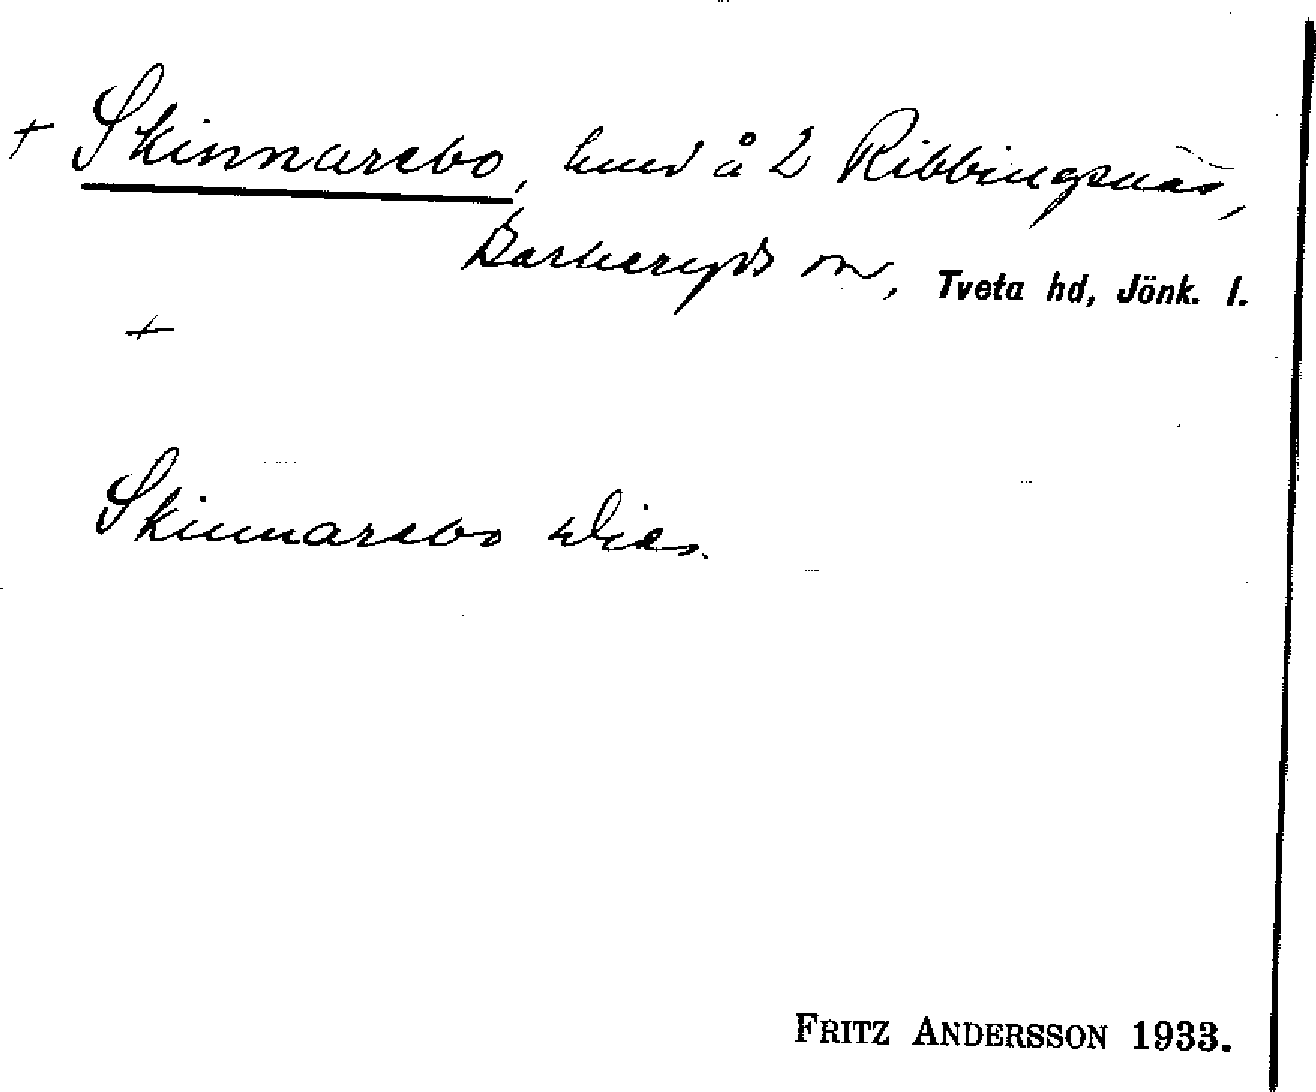 + Skinnarebo, lund å 2 Ribbingsnäs,
Barkeryds sn, Tveta hd, Jönk. l.
+
Skinnarebo
FRITZ ANDERSSON 1933.